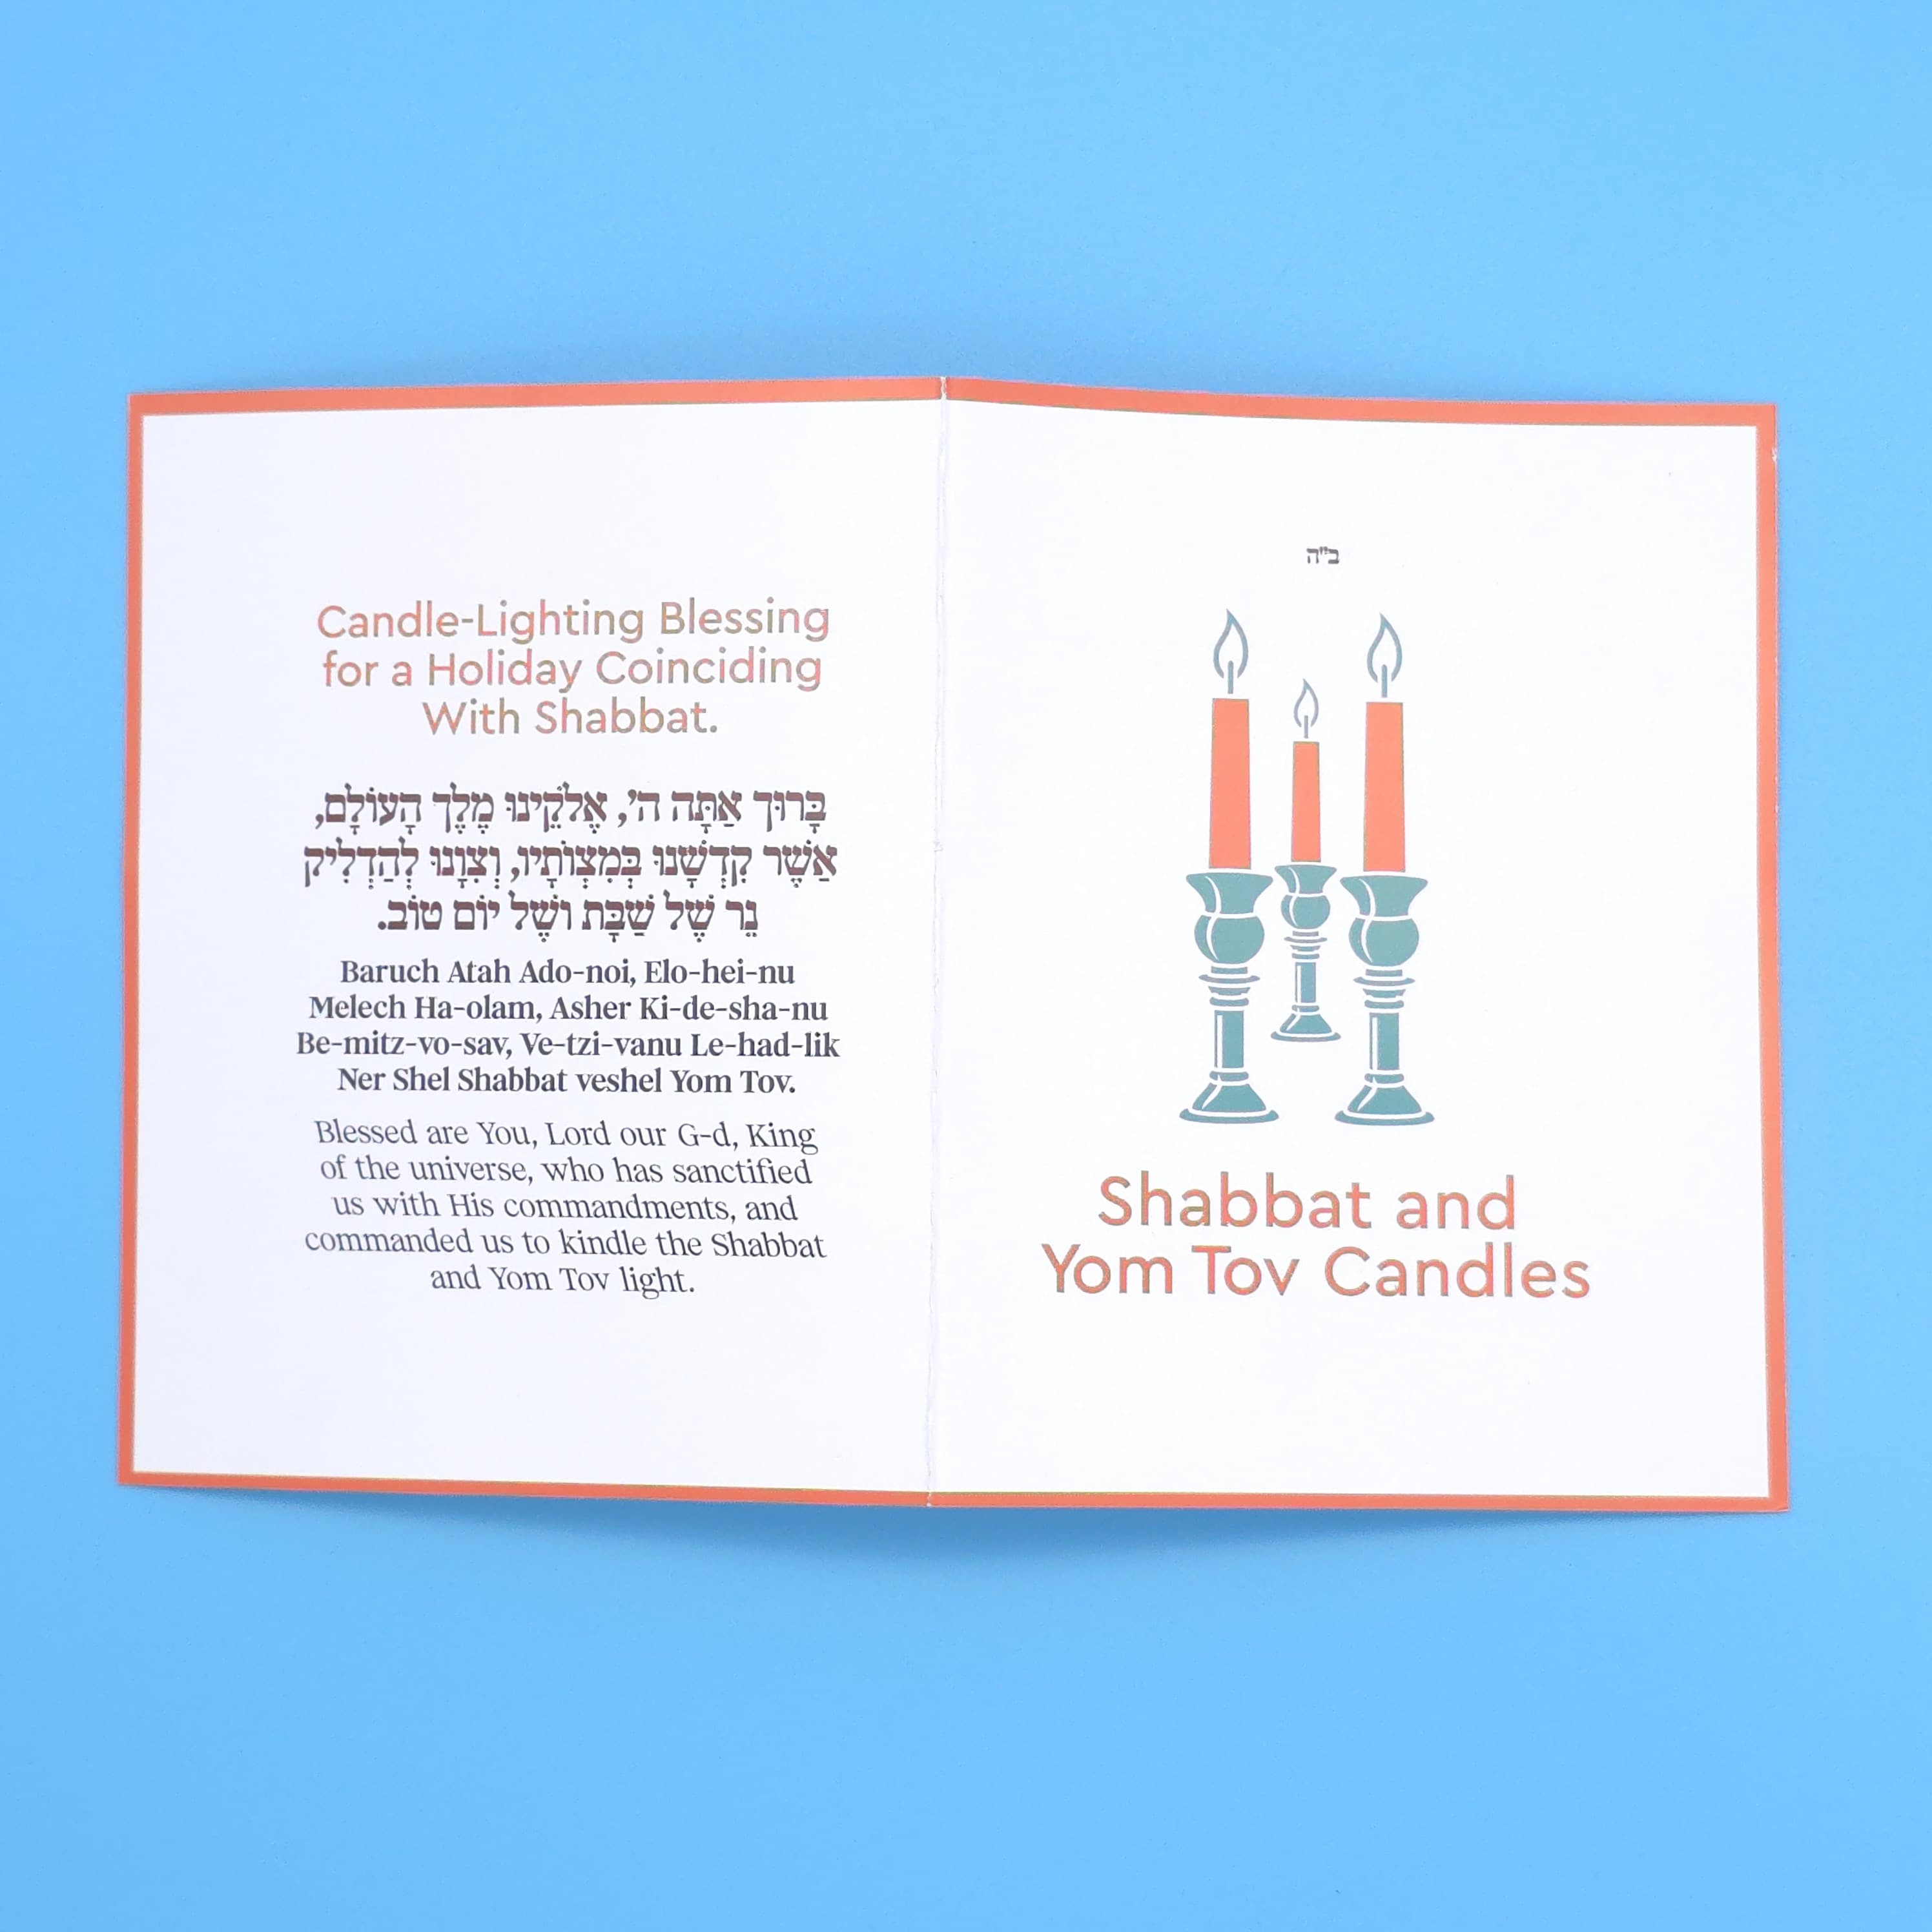 Candle-Lighting Blessing
for a Holiday Coinciding
With Shabbat.
בָּרוּךְ אַתָּה ה', אֱלֹקֵינוּ מֶלֶךְ הָעוֹלָם,
אַשֶׁר קִדְשָׁנוּ בְּמִצְוֹתָיו, וְצִוָנוּ לְהַדְלִיק
נֵר שֶׁל שַׁבָּת וְשֶׁל יוֹם טוֹב.
Baruch Atah Ado-noi, Elo-hei-nu
Melech Ha-olam, Asher Ki-de-sha-nu
Be-mitz-vo-sav, Ve-tzi-vanu Le-had-lik
Ner Shel Shabbat veshel Yom Tov.
Blessed are You, Lord our G-d, King
of the universe, who has sanctified
us with His commandments, and
commanded us to kindle the Shabbat
and Yom Tov light.
ב"ה
Shabbat and
Yom Tov Candles